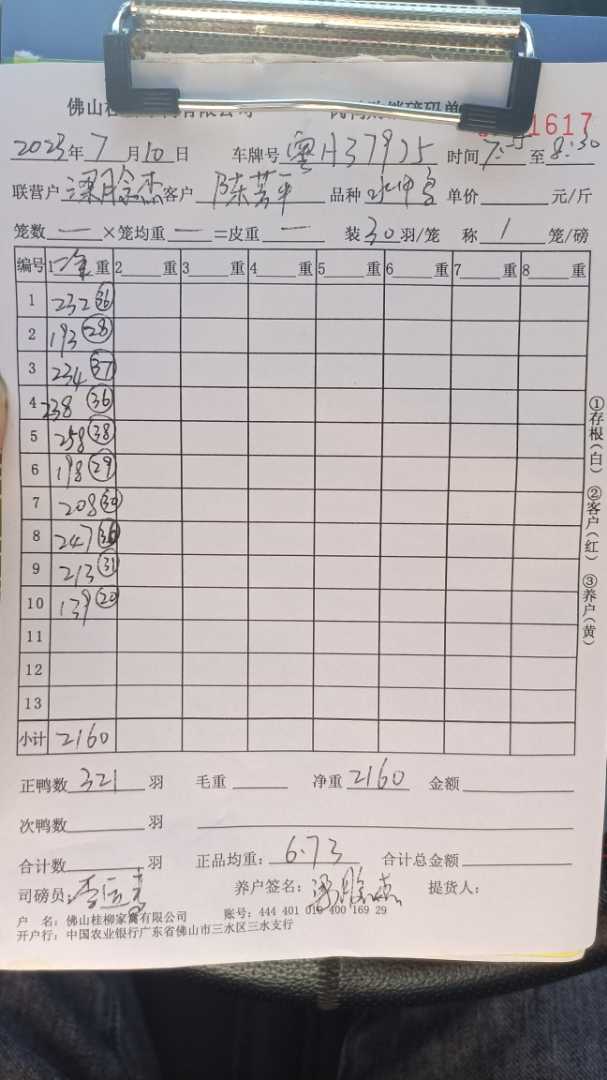 佛山桂 有限公司 磅码单
1617
2023年7月10日 车牌号 粤H37925 时间 7:55 至 8:30
联营户 梁腾杰 客户 陈 平 品种 单价 元/斤
笼数 — ×笼均重 — =皮重 — 装 30 羽/笼 称 1 笼/磅
编号 1 重 2 重 3 重 4 重 5 重 6 重 7 重 8 重
1 232 36
2 193 28
3 234 37
4 238 36
5 258 38
6 198 29
7 208 30
8 247 36
9 213 31
10 139 20
11
12
13
小计 2160
正鸭数 321 羽 毛重 净重 2160 金额
次鸭数 羽
合计数 羽 正品均重: 6.73 合计总金额
司磅员: 李 养户签名: 梁腾杰 提货人:
户 名: 佛山桂柳家禽有限公司 账号: 444 401 010 400 169 29
开户行: 中国农业银行广东省佛山市三水区三水支行
①存根(白) ②客户(红) ③养户(黄)